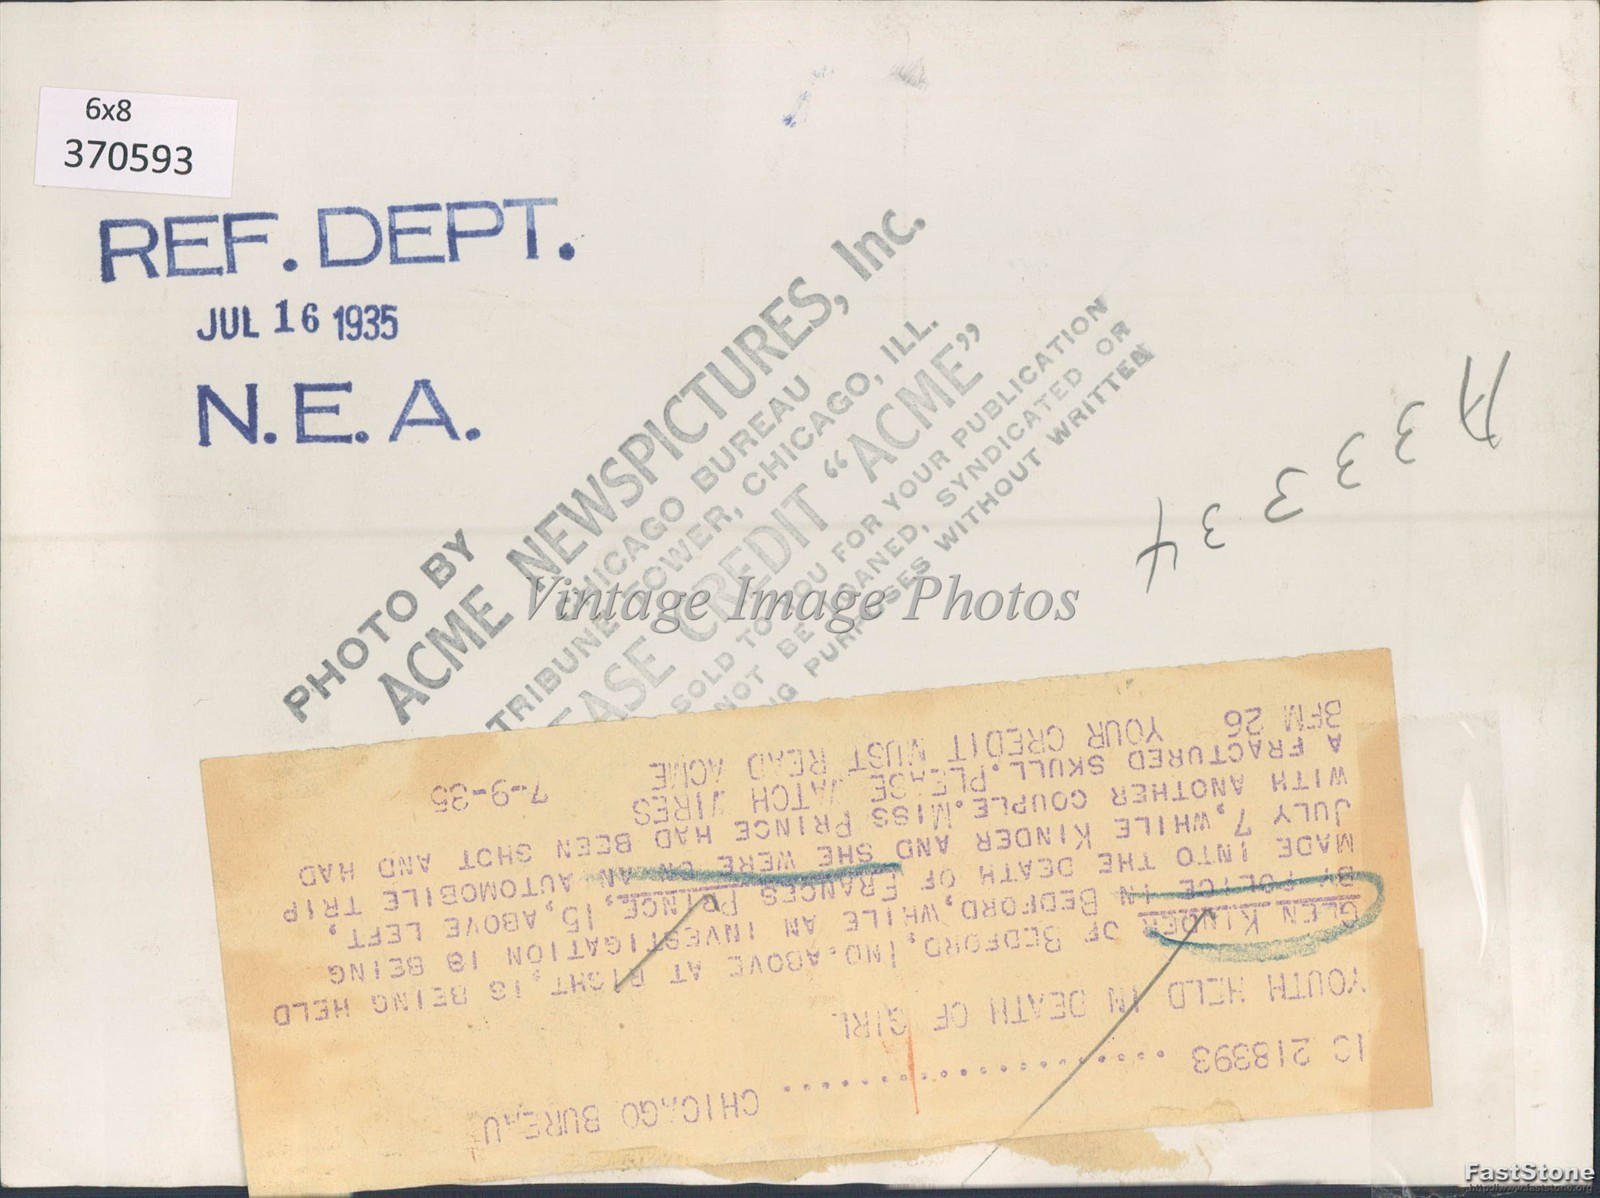 6x8
370593
REF. DEPT.
JUL 16 1935
N.E.A.
PHOTO BY
ACME NEWSPICTURES, Inc.
CHICAGO BUREAU
TRIBUNE TOWER, CHICAGO, ILL.
EASE CREDIT “ACME”
SOLD TO YOU FOR YOUR PUBLICATION
NOT BE LOANED, SYNDICATED OR
NG PURPOSES WITHOUT WRITTEN
Vintage Image Photos
IC 218393 .................... CHICAGO BUREAU
YOUTH HELD IN DEATH OF GIRL
GLEN KINDER OF BEDFORD, IND. ABOVE AT RIGHT, IS BEING HELD
BY POLICE IN BEDFORD, WHILE AN INVESTIGATION IS BEING
MADE INTO THE DEATH OF FRANCES PRINCE, 15, ABOVE LEFT,
JULY 7, WHILE KINDER AND SHE WERE ON AN AUTOMOBILE TRIP
WITH ANOTHER COUPLE. MISS PRINCE HAD BEEN SHOT AND HAD
A FRACTURED SKULL. PLEASE WATCH WIRES
BFM 26 YOUR CREDIT MUST READ ACME 7-9-35
FastStone